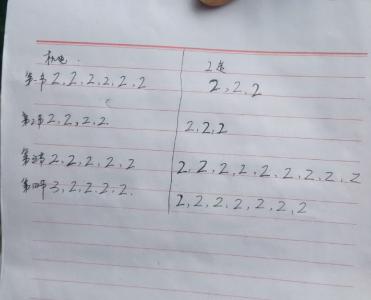 机电 工类
第一节 2,2,2,2,2,2 2,2,2
第2节 2,2,2,2. 2,2,2
第三节 2,2,2,2,2 2,2,2,2,2,2,2,2,2
第四节 3,2,2,2,2. 2,2,2,2,2,2,2